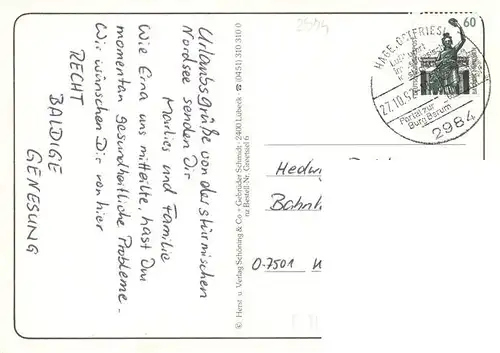 Urlaubsgrüße von der stürmischen
Nordsee senden Dir
Marlies und Familie
Wie Erna uns mitteilte, hast Du
momentan gesundheitliche Probleme.
Wir wünschen Dir von hier
RECHT
BALDIGE
GENESUNG
© Herst. u. Verlag Schöning & Co. + Gebrüder Schmidt · 2400 Lübeck · ☎ (0451) 310 310 0
zu Bestell-Nr. Greetsiel 6
60
HAGE, OSTFRIESL
27.10.92
Portal zur
Burg Berum
2984
Hedw
Bahnh
O-7501